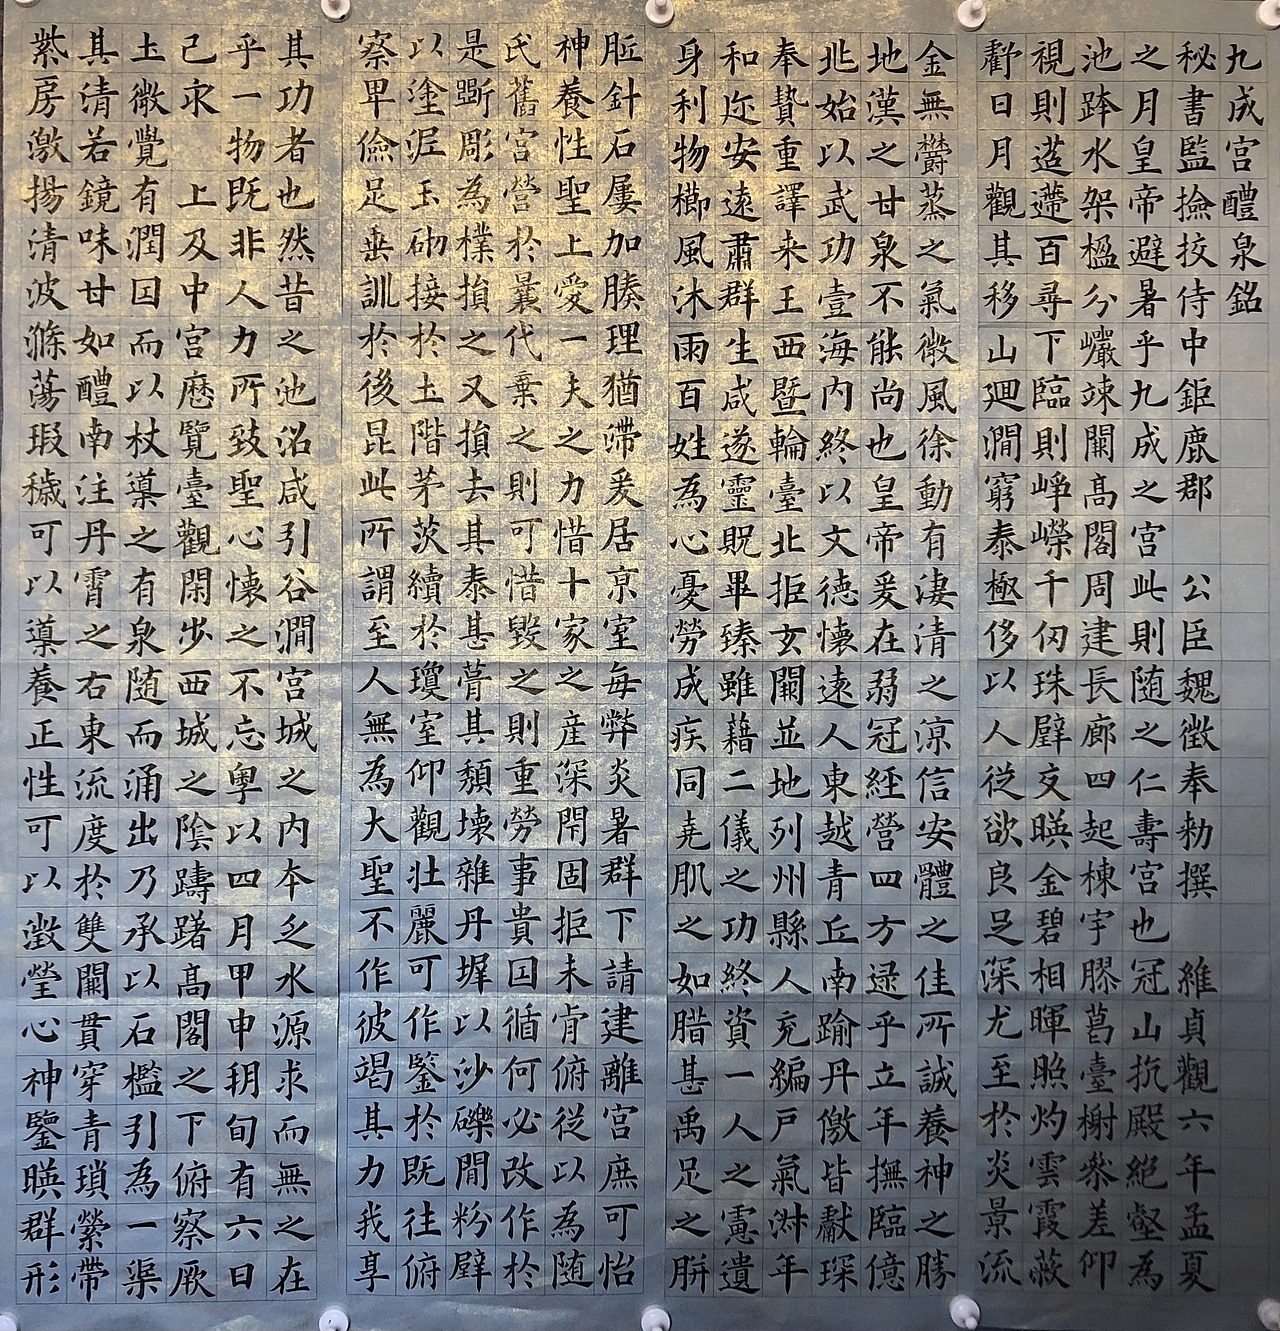 九成宮醴泉銘
秘書監撿挍侍中鉅鹿郡 公臣魏徵奉勑撰 維貞觀六年孟夏
之月皇帝避暑乎九成之宮此則随之仁壽宮也冠山抗殿絕壑為
池跨水架楹分巖竦闕高閣周建長廊四起棟宇膠葛臺榭參差仰
視則迢遰百尋下臨則崢嶸千仞珠璧交暎金碧相暉照灼雲霞蔽
虧日月觀其移山迴澗窮泰極侈以人從欲良足深尤至於炎景流
金無鬱蒸之氣微風徐動有淒清之涼信安體之佳所誠養神之勝
地漢之甘泉不能尚也皇帝爰在弱冠經營四方逮乎立年撫臨億
兆始以武功壹海內終以文德懷遠人東越青丘南踰丹儌皆獻琛
奉贄重譯来王西暨輪臺北拒玄闕並地列州縣人充編戶氣淑年
和迩安遠肅群生咸遂靈貺畢臻雖藉二儀之功終資一人之慮遺
身利物櫛風沐雨百姓為心憂勞成疾同堯肌之如腊甚禹足之胼
胝針石屢加腠理猶滯爰居京室每弊炎暑群下請建離宮庶可怡
神養性聖上愛一夫之力惜十家之產深閇固拒未肯俯從以為随
氏舊宮營於曩代棄之則可惜毀之則重勞事貴因循何必改作於
是斲彫為樸損之又損去其泰甚葺其頹壞雜丹墀以沙礫間粉壁
以塗泥玉砌接於土階茅茨續於瓊室仰觀壯麗可作鑒於既往俯
察卑儉足垂訓於後昆此所謂至人無為大聖不作彼竭其力我享
其功者也然昔之池沼咸引谷澗宮城之內本乏水源求而無之在
乎一物既非人力所致聖心懷之不忘粵以四月甲申朔旬有六日
己亥 上及中宮歷覽臺觀閑步西城之陰躊躇高閣之下俯察厥
土微覺有潤因而以杖導之有泉随而涌出乃承以石檻引為一渠
其清若鏡味甘如醴南注丹霄之右東流度於雙闕貫穿青瑣縈帶
紫房激揚清波滌蕩瑕穢可以導養正性可以澂瑩心神鑒暎群形